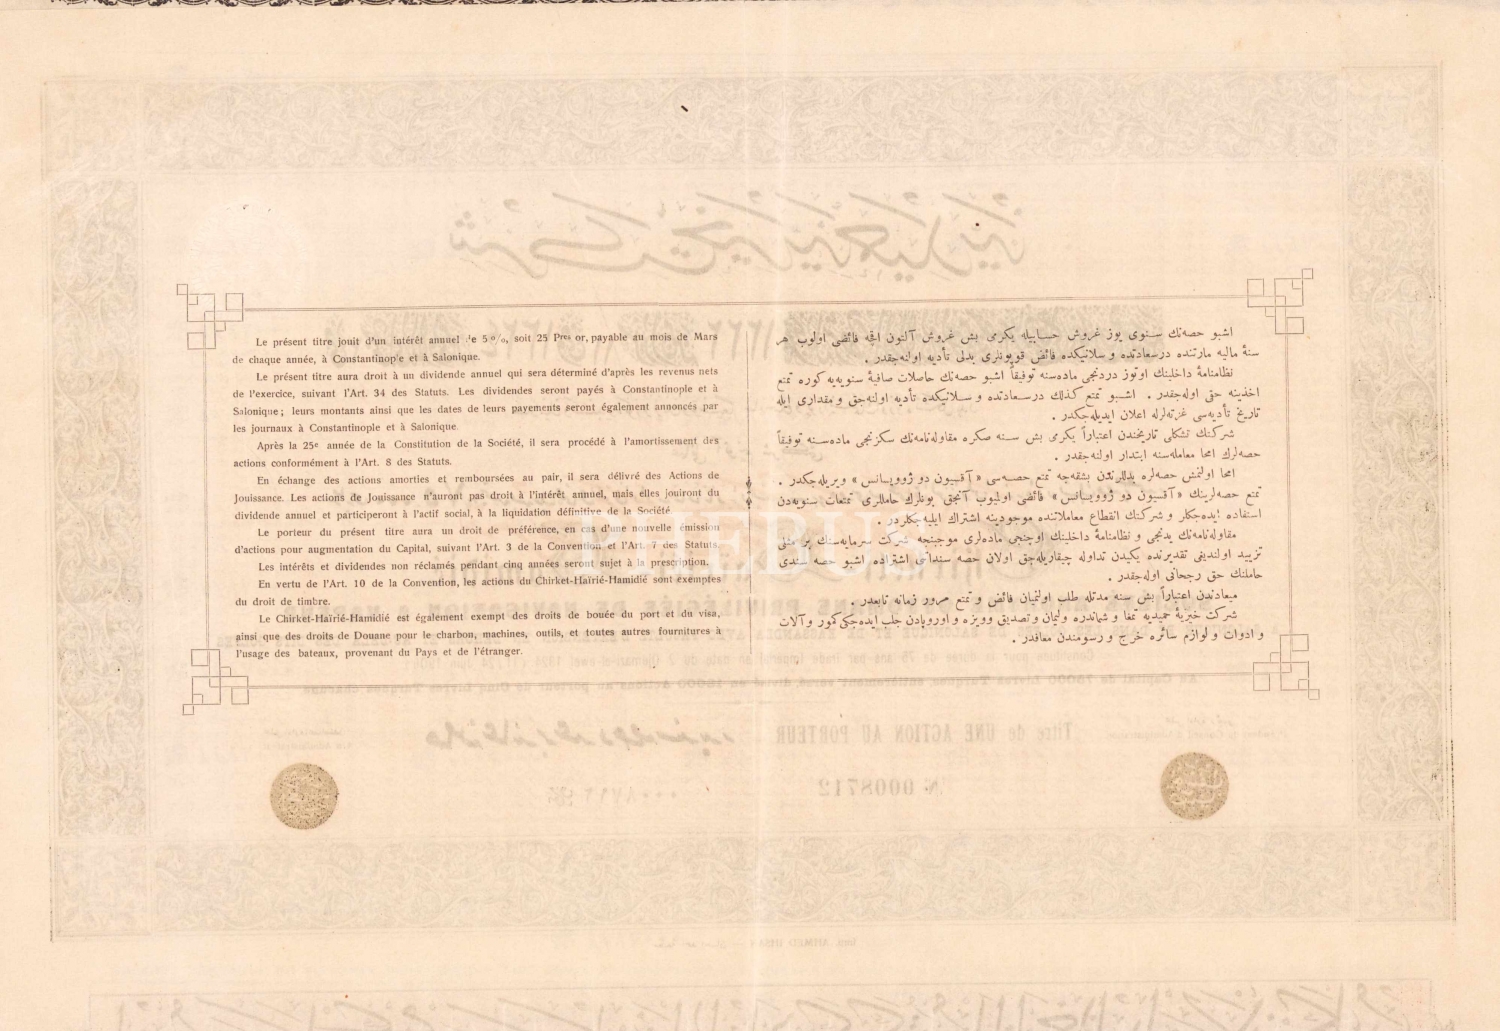 Le présent titre jouit d'un intérêt annuel de 5 %, soit 25 Pres or, payable au mois de Mars
de chaque année, à Constantinople et à Salonique.
Le présent titre aura droit à un dividende annuel qui sera déterminé d'après les revenus nets
de l'exercice, suivant l'Art. 34 des Statuts. Les dividendes seront payés à Constantinople et à
Salonique; leurs montants ainsi que les dates de leurs payements seront également annoncés par
les journaux à Constantinople et à Salonique
Après la 25e année de la Constitution de la Société, il sera procédé à l'amortissement des
actions conformément à l'Art. 8 des Statuts.
En échange des actions amorties et remboursées au pair, il sera délivré des Actions de
Jouissance. Les actions de Jouissance n'auront pas droit à l'intérêt annuel, mais elles jouiront du
dividende annuel et participeront à l'actif social, à la liquidation définitive de la Société.
Le porteur du présent titre aura un droit de préférence, en cas d'une nouvelle émission
d'actions pour augmentation du Capital, suivant l'Art. 3 de la Convention et l'Art. 7 des Statuts.
Les intérêts et dividendes non réclamés pendant cinq années seront sujet à la prescription.
En vertu de l'Art. 10 de la Convention, les actions du Chirket-Haïrié-Hamidié sont exemptes
du droit de timbre.
Le Chirket-Haïrié-Hamidié est également exempt des droits de bouée du port et du visa,
ainsi que des droits de Douane pour le charbon, machines, outils, et toutes autres fournitures à
l'usage des bateaux, provenant du Pays et de l'étranger.
اشبو حصه‌نك سنوی یوز غروش حسابیله یکرمی بش غروش آلتون اقچه فائضی اولوب هر
سنهٔ مالیه مارتنده درسعادتده و سلانیكده فائض قوپونلری بدلی تأدیه اولنه‌جقدر .
نظامنامهٔ داخلینك اوتوز دردنجی ماده‌سنه توفیقاً اشبو حصه‌نك حاصلات صافیهٔ سنویه‌یه کوره تمتع
اخذینه حقی اوله‌جقدر . اشبو تمتع کذلك درسعادتده و سلانیكده تأدیه اولنه‌جق و مقداری ایله
تاریخ تأدیه‌سی غزته‌لرله اعلان ایدیله‌جکدر .
شرکتك تشکلی تاریخندن اعتباراً یکرمی بش سنه صکره مقاوله‌نامه‌نك سکزنجی ماده‌سنه توفیقاً
حصه‌لرك امحا معامله‌سنه ابتدار اولنه‌جقدر .
امحا اولنمش حصه‌لره بدللرندن بشقه‌جه تمتع حصه‌سی « آقسیون دو ژوویسانس » ویریله‌جکدر .
تمتع حصه‌لرینك «آقسیون دو ژوویسانس» فائضی اولمیوب آنجق بونلرك حاملری تمتعات سنویه‌دن
استفاده ایده‌جکلر و شرکتك انقطاع معاملاتنده موجودینه اشتراك ایلیه‌جکلردر .
مقاوله‌نامه‌نك یدنجی و نظامنامهٔ داخلینك اوچنجی ماده‌لری موجبنجه شرکت سرمایه‌سنك بر مثلی
تزیید اولندیغی تقدیرنده یکیدن تداوله چیقاریله‌جق اولان حصه سنداتی اشتراسنده اشبو حصه سندی
حاملنك حق رجحانی اوله‌جقدر .
میعادندن اعتباراً بش سنه مدتله طلب اولنمیان فائض و تمتع مرور زمانه تابعدر .
شرکت خیریهٔ حمیدیه تمغا و شماندره ولیمان وتصدیق وویزه و اوروپادن جلب ایده‌جکی کمور و آلات
و ادوات و لوازم سائره خرج و رسومندن معافدر .
PHEBUS